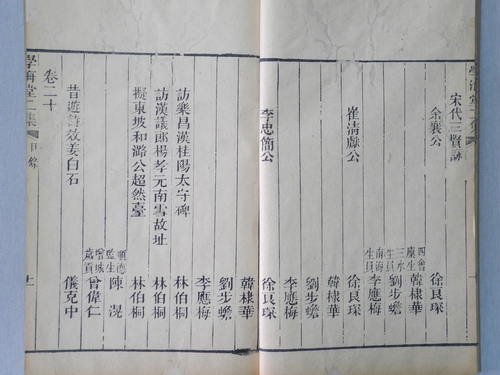 宋代三賢詠
余襄公 徐良琛
四會廩生 韓棣華
三水生員 劉步蟾
南海生員 李應梅
崔清獻公 徐良琛
韓棣華
劉步蟾
李應梅
李忠簡公 徐良琛
韓棣華
劉步蟾
李應梅
訪樂昌漢桂陽太守碑 林伯桐
訪漢議郎楊孝元南雪故址 林伯桐
擬東坡和潞公超然臺 林伯桐
順德監生 陳滉
增城歲貢 曾偉仁
昔遊詩效姜白石 儀克中
卷二十
學海堂二集 目錄